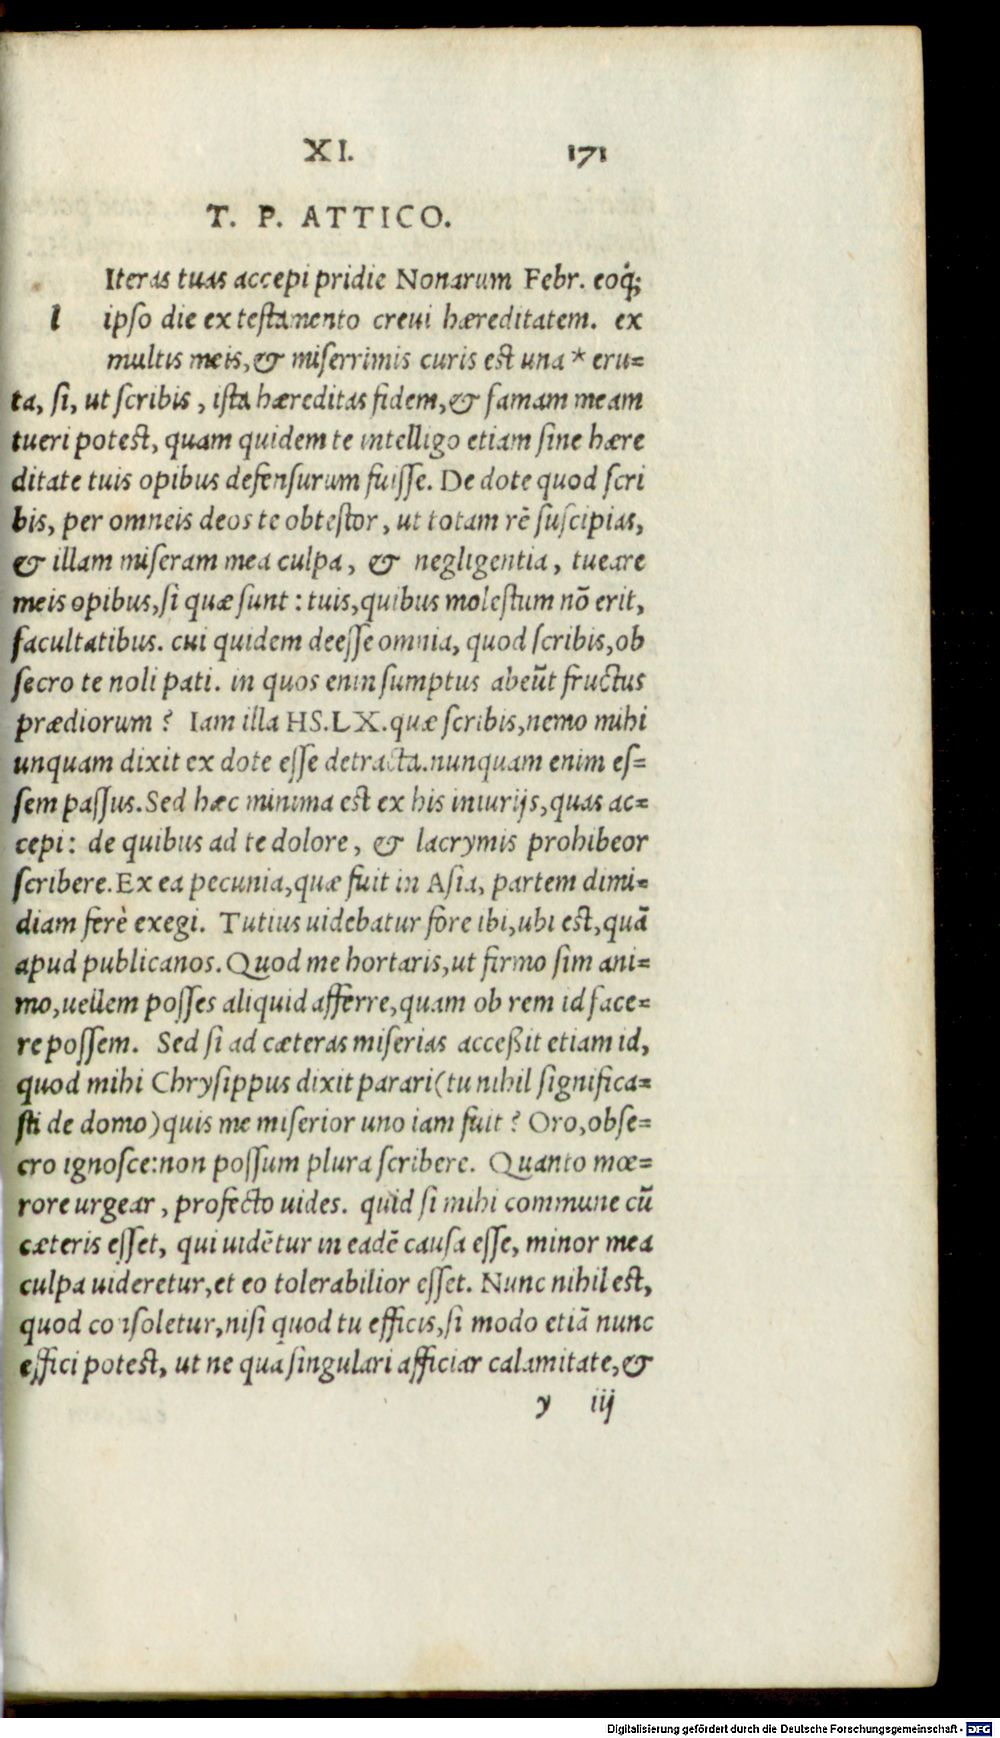 XI. 171
T. P. ATTICO.
Iteras tuas accepi pridie Nonarum Febr. eoq́;
l ipso die ex testamento creui hæreditatem. ex
multis meis, & miserrimis curis est una * eru=
ta, si, ut scribis, ista hæreditas fidem, & famam meam
tueri potest, quam quidem te intelligo etiam sine hære
ditate tuis opibus defensurum fuisse. De dote quod scri
bis, per omneis deos te obtestor, ut totam rē suscipias,
& illam miseram mea culpa, & negligentia, tueare
meis opibus, si quæ sunt: tuis, quibus molestum nō erit,
facultatibus. cui quidem deesse omnia, quod scribis, ob
secro te noli pati. in quos enim sumptus abeūt fructus
prædiorum? Iam illa HS.LX. quæ scribis, nemo mihi
unquam dixit ex dote esse detracta. nunquam enim es=
sem passus. Sed hæc minima est ex his iniurijs, quas ac=
cepi: de quibus ad te dolore, & lacrymis prohibeor
scribere. Ex ea pecunia, quæ fuit in Asia, partem dimi=
diam ferè exegi. Tutius uidebatur fore ibi, ubi est, quā
apud publicanos. Quod me hortaris, ut firmo sim ani=
mo, uellem posses aliquid afferre, quam ob rem id face=
re possem. Sed si ad cæteras miserias acceßit etiam id,
quod mihi Chrysippus dixit parari (tu nihil significa=
sti de domo) quis me miserior uno iam fuit? Oro, obse=
cro ignosce: non possum plura scribere. Quanto mœ=
rore urgear, profecto uides. quid si mihi commune cū
cæteris esset, qui uidētur in eadē causa esse, minor mea
culpa uideretur, et eo tolerabilior esset. Nunc nihil est,
quod consoletur, nisi quod tu efficis, si modo etiā nunc
effici potest, ut ne qua singulari afficiar calamitate, &
y iij
Digitalisierung gefördert durch die Deutsche Forschungsgemeinschaft - DFG